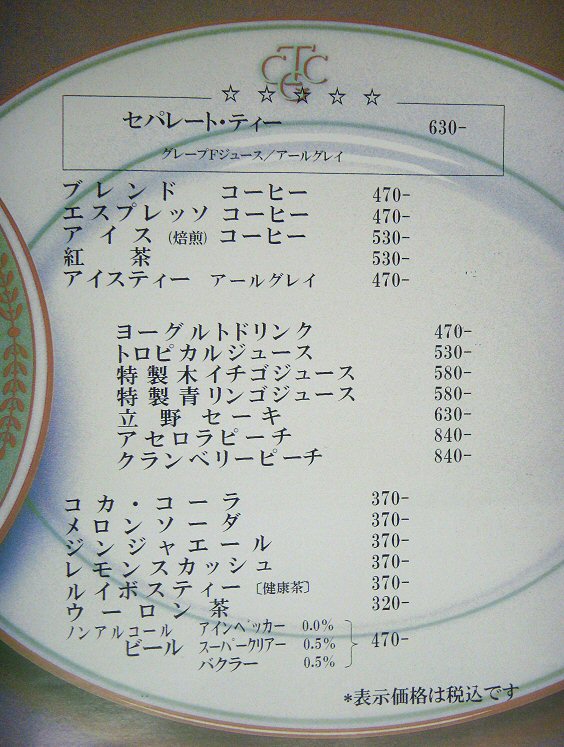 CTCC
☆ ☆ ☆ ☆ ☆
セパレート・ティー 630-
グレープFジュース／アールグレイ
ブレンド コーヒー 470-
エスプレッソ コーヒー 470-
アイス (焙煎) コーヒー 530-
紅茶 530-
アイスティー アールグレイ 470-
ヨーグルトドリンク 470-
トロピカルジュース 530-
特製木イチゴジュース 580-
特製青リンゴジュース 580-
立野セーキ 630-
アセロラピーチ 840-
クランベリーピーチ 840-
コカ・コーラ 370-
メロンソーダ 370-
ジンジャエール 370-
レモンスカッシュ 370-
ルイボスティー 〔健康茶〕 370-
ウーロン茶 320-
ノンアルコール アインベッカー 0.0%
ビール スーパークリアー 0.5% 470-
バクラー 0.5%
*表示価格は税込です